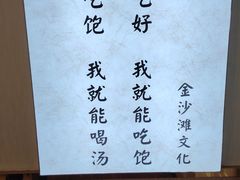 吃饱 我就能喝汤
吃好 我就能吃饱
金沙滩文化